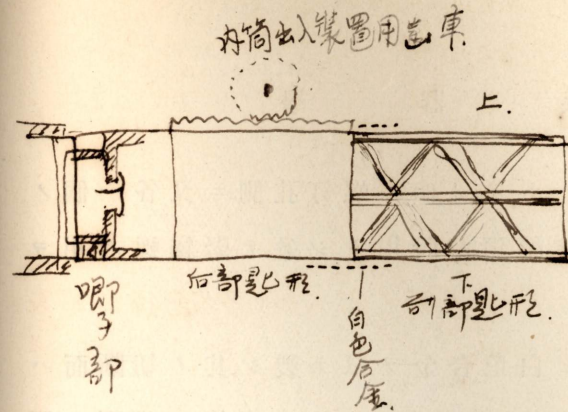 内筒出入装置用歯車
上.
喞子部
后部匙形.
白色合金.
下
前部匙形.